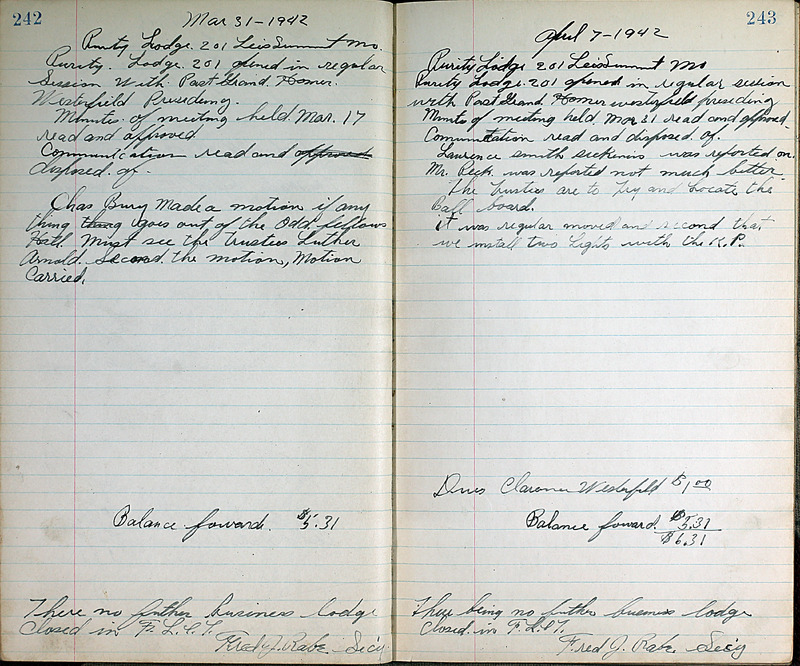 242
Mar 31-1942
Purity Lodge. 201 LeisSummit Mo.
Purity. Lodge. 201 opened in regular
Session With. Past Grand. Homer.
Westerfield Presiding.
Minutes of meeting held. Mar. 17
read and approved
Communication read and approved
disposed. of.
Chas Burg Made a motion if any
thing thing goes out of the Odd. fellows
Hall. Must see the Trusties Luther
Arnold. Second. the motion, Motion
Carried.
Balance foward. $5.31
There no futher business lodge
Closed in F. L. & T.
Fred J. Rabe Sec'y
243
April 7-1942
Purity Lodge 201 LeisSummit Mo
Purity Lodge. 201 opened in regular session
with Past Grand. Homer westerfield presiding
Minuts of meeting held Mar 21 read and approved.
Communication read and disposed. of.
Laurence smith was reported on.
Mr. Peck was reported not much better.
The Trusties are to try and locate the
Ball board.
it was regular moved and second that
we install two lights with the K.P.
Dues Clarence Westerfield $1.00
Balance foward. $5.31
$6.31
There being no futher business lodge
Closed. in F. L & T.
Fred J. Rabe Sec'y